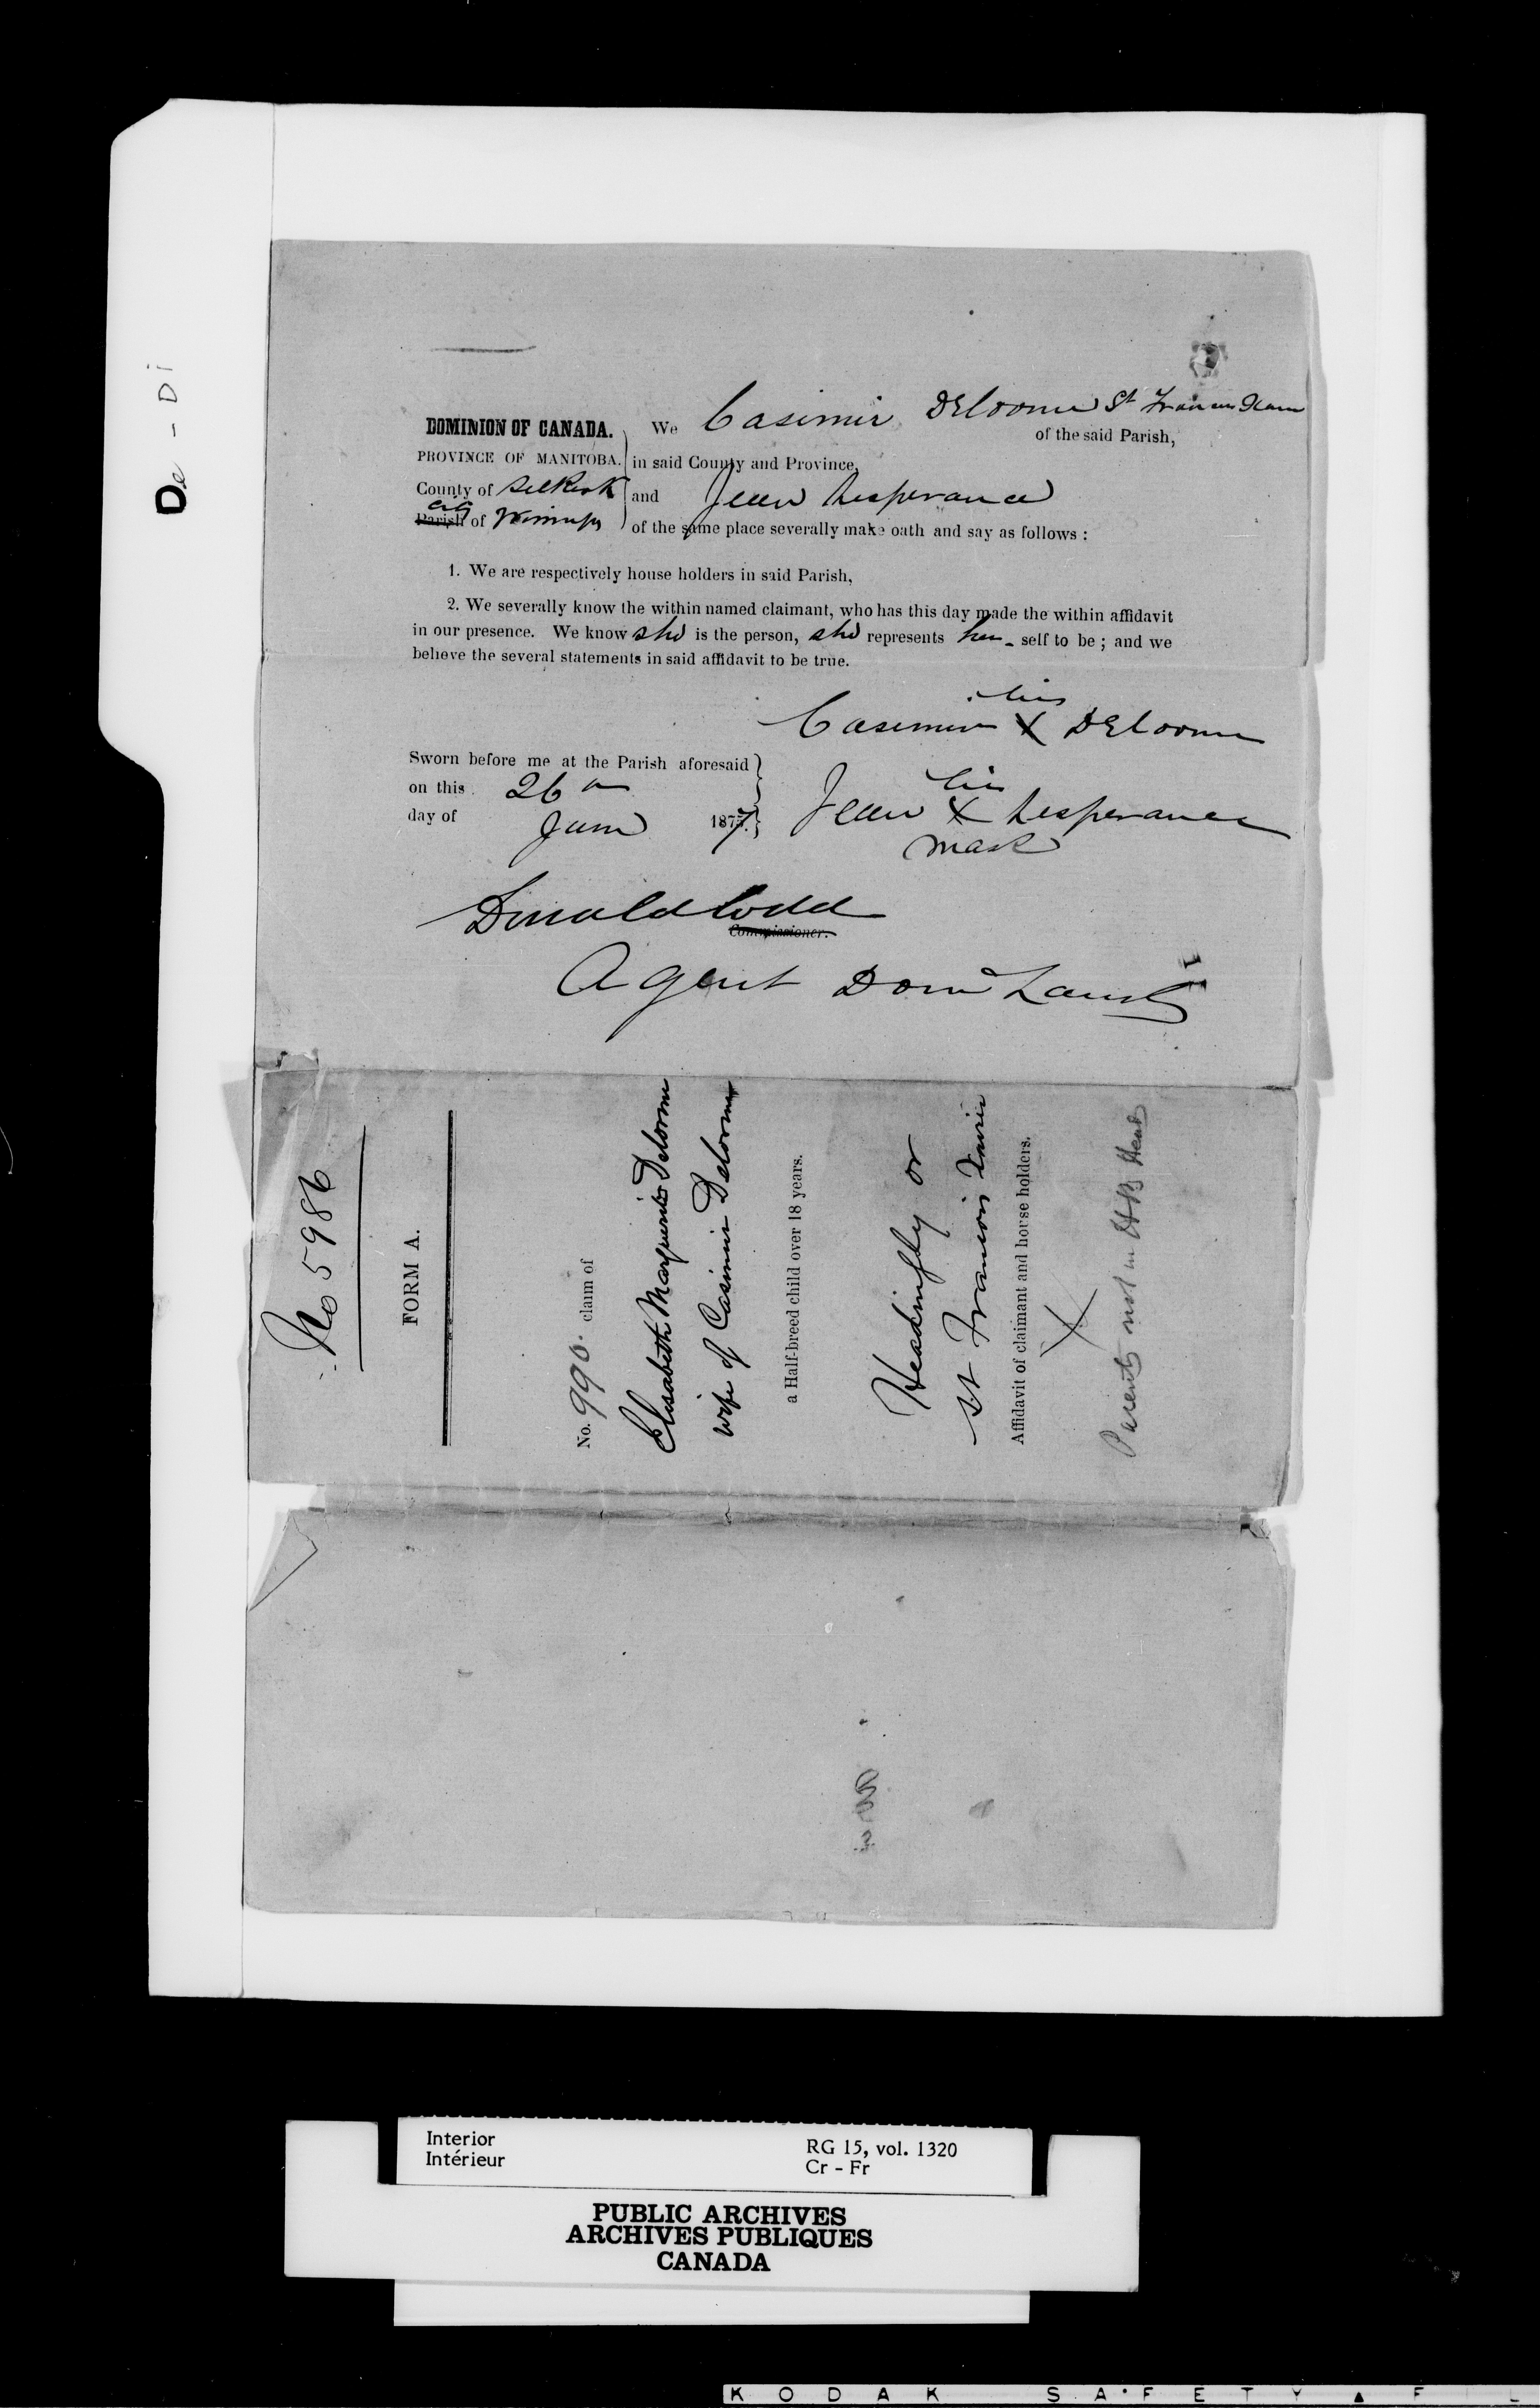 De - Di
DOMINION OF CANADA.
PROVINCE OF MANITOBA.
County of Selkirk
city
Parish of Winnipeg
We Casimir Delorme St Francois Xavier
of the said Parish,
in said County and Province,
and Jean Lesperance
of the same place severally make oath and say as follows :
1. We are respectively house holders in said Parish,
2. We severally know the within named claimant, who has this day made the within affidavit
in our presence. We know she is the person, she represents her- self to be ; and we
believe the several statements in said affidavit to be true.
his
Casimir X Delorme
Sworn before me at the Parish aforesaid
on this 26th
day of June 1877.
his
Jean X Lesperance
mark
Donald Codd
Commissioner.
Agent Dom Lands
No 5986
FORM A.
No. 990. claim of
Elisabeth Marguerite Delorme
wife of Casimir Delorme
a Half-breed child over 18 years.
Headingly or
St Francois Xavier
Affidavit of claimant and house holders.
X
Parents not in HB Heads
Interior
Intérieur
RG 15, vol. 1320
Cr - Fr
PUBLIC ARCHIVES
ARCHIVES PUBLIQUES
CANADA
KODAK SAFETY F